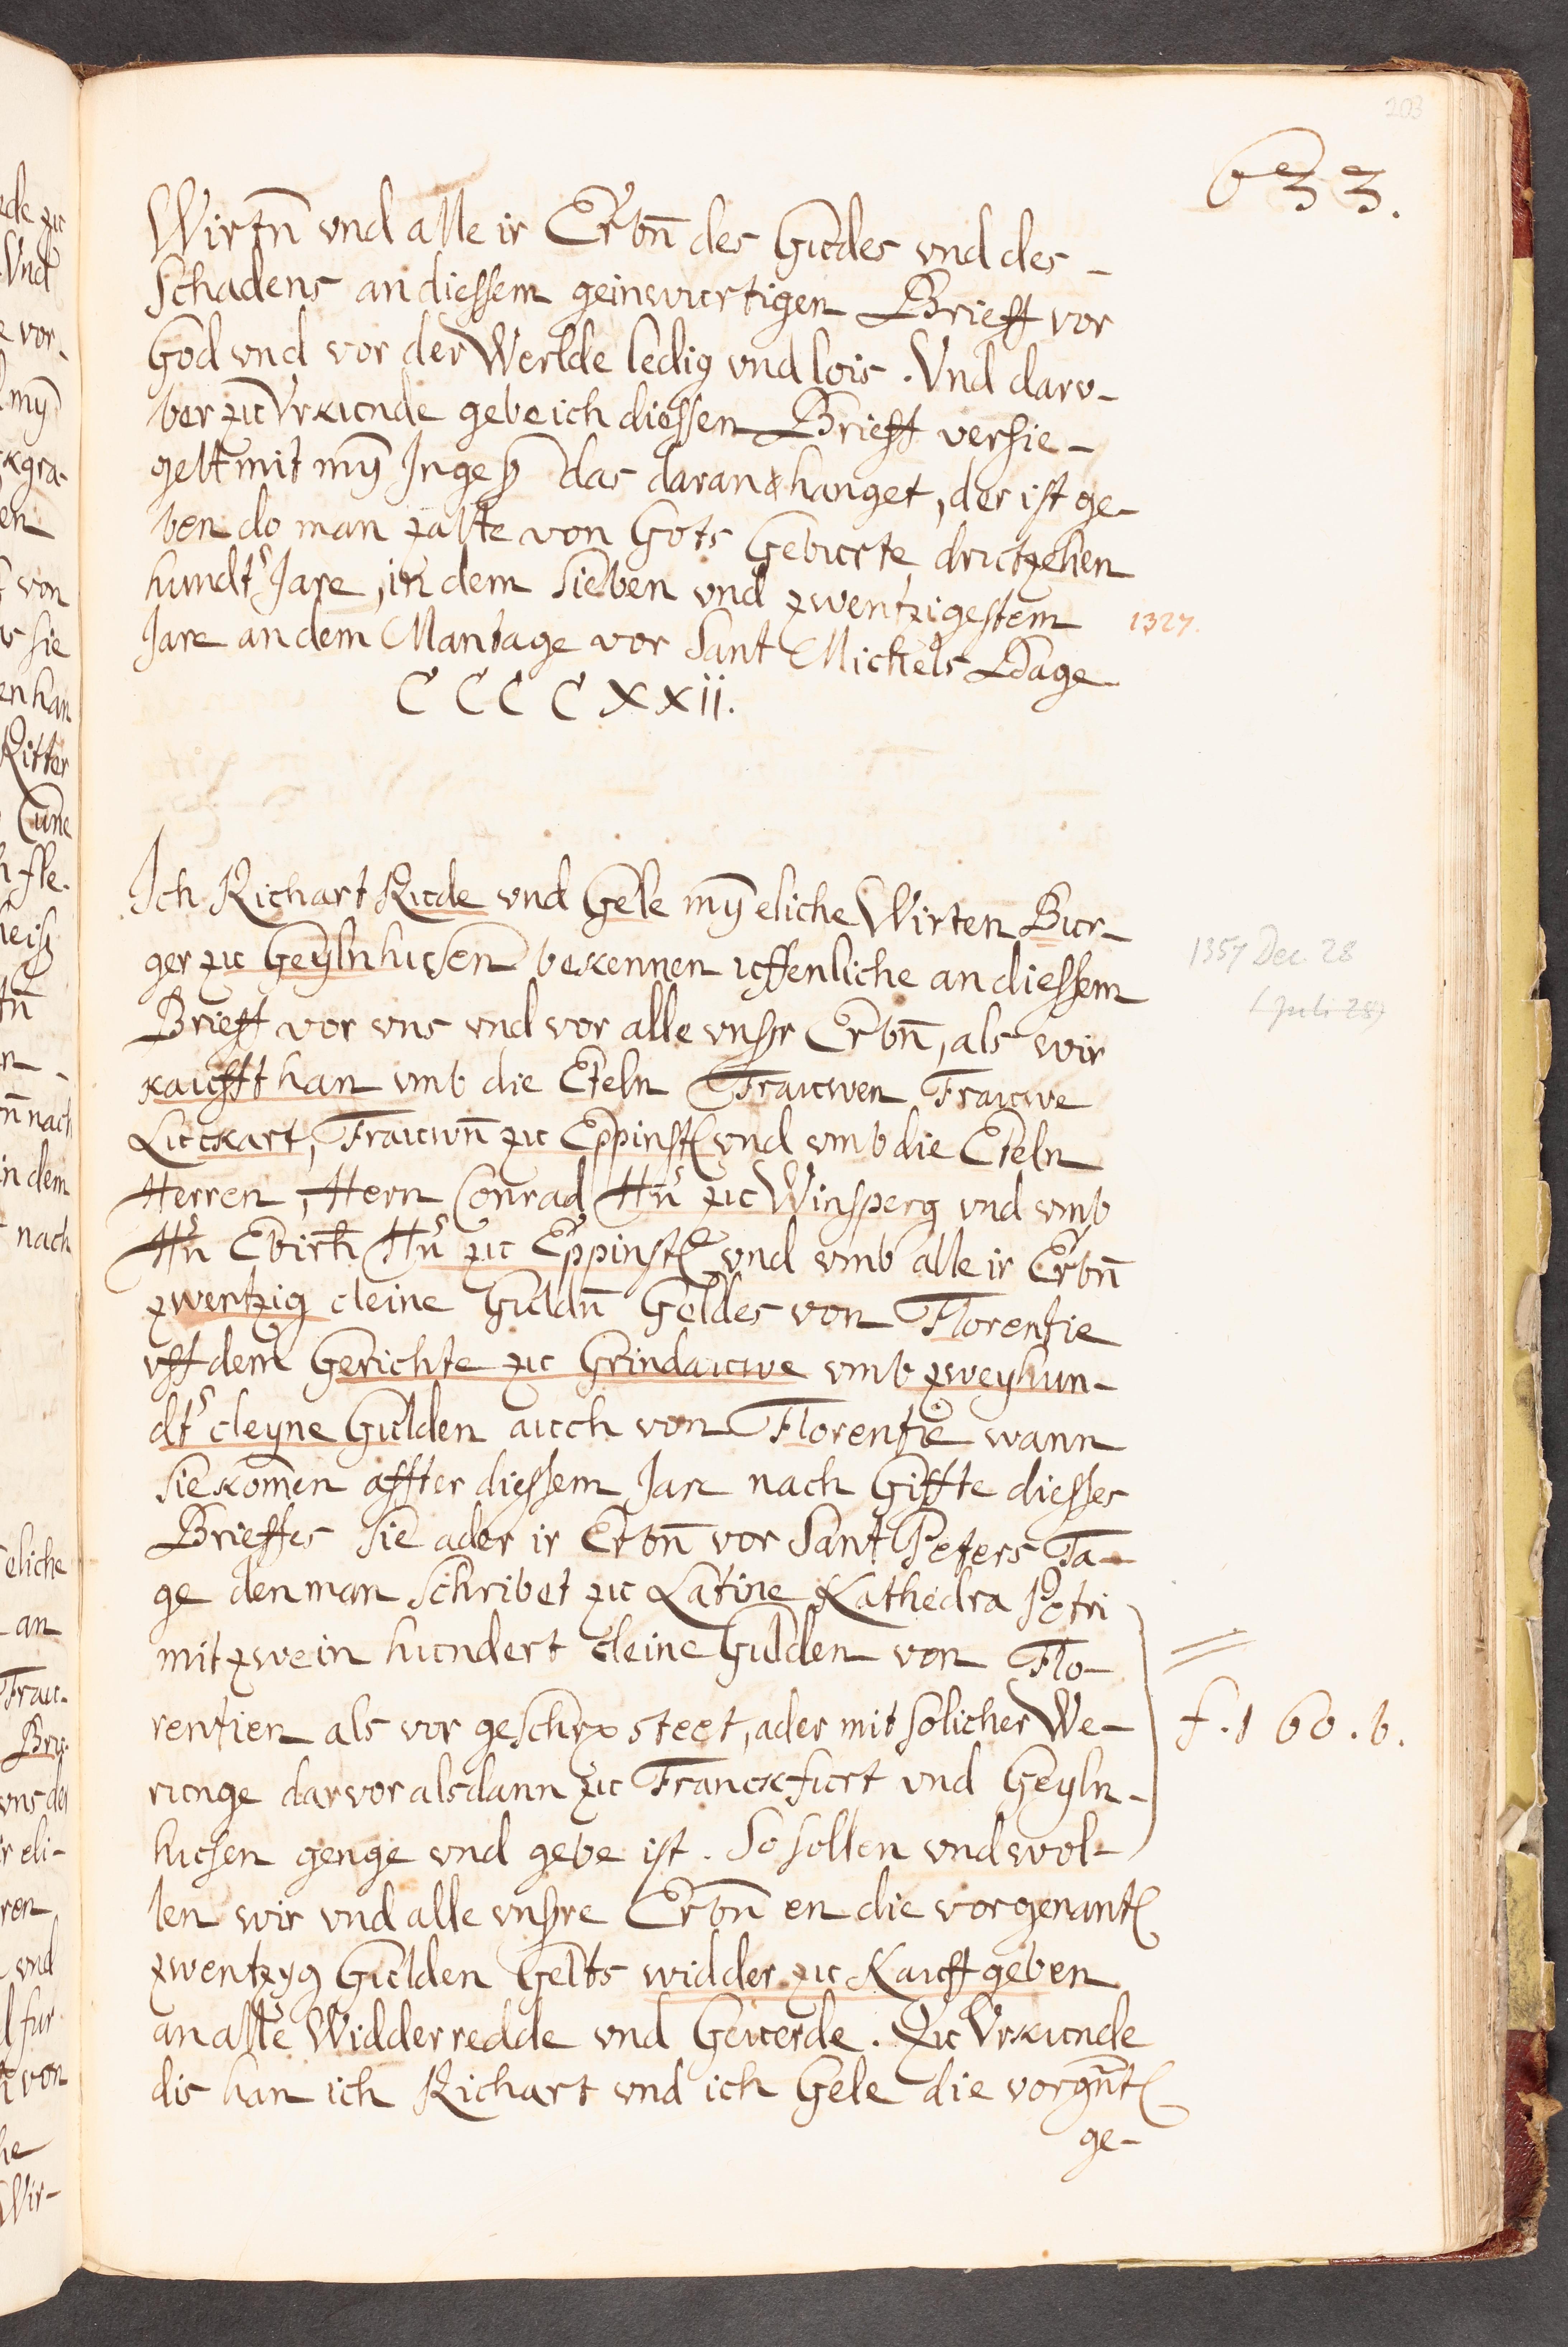 203
633.
Wirtn̄ vnd alle ir Erbn̄ des Gudes vnd des -
Schadens an diessem geinwurtigen Brieff vor
God vnd vor der Werlde ledig vnd lois. Vnd daru-
ber zu Vrkunde gebe ich diessen Brieff versie-
gelt mit mȳ Ingeß das daran hanget, der ist ge-
ben do man zalte von Gots Geburte drutzehen
hundts Jare, in dem Sieben vnd zwentzigestem
1327.
Jare an dem Mantage vor Sant Michels Dage
CCCCXXII.
Ich Richart Rude vnd Gele mȳ eliche Wirten Bur-
ger zu Geylnhusen bekennen uffenliche an diessem
1357 Dec. 28
(Juli 28)
Brieff vor vns vnd vor alle vnßr Erbn̄, als wir
kaufft han vmb die Eteln Frauwen Frauwe
Luckart, Frauwn̄ zu Eppinst vnd vmb die Eteln
Herren, Hern Conrad Hn̄ zu Winsperg vnd vmb
Hn̄ Ebirh Hn̄ zu Eppinst vnd vmb alle ir Erbn̄
zwentzig cleine Guldn̄ Geldes von Florentie
vff dem Gerichte zu Grindauwe vmb zweyhun-
dts cleyne Gulden auch von Florentie wann
Sie komen affter diessem Jare nach Giffte diesses
Brieffes Sie ader ir Erbn̄ vor Sant Peters Ta-
ge den man Schribet zu Latine Kathedra Petri
mit zwein hundert cleine Gulden von Flo-
rentien als vor geschr steet, ader mit solicher We-
f. 160. b.
runge darvor alsdann zu Franckfurt vnd Geyln-
husen genge vnd gebe ist. So sollen vnd wol-
len wir vnd alle vnßre Erbn̄ en die vorgenant
zwentzyg Gulden Gelts widder zu Kauff geben
an alle Widderredde vnd Geuerde. Zu Vrkunde
dis han ich Richart vnd ich Gele die vorgn̄t
ge-